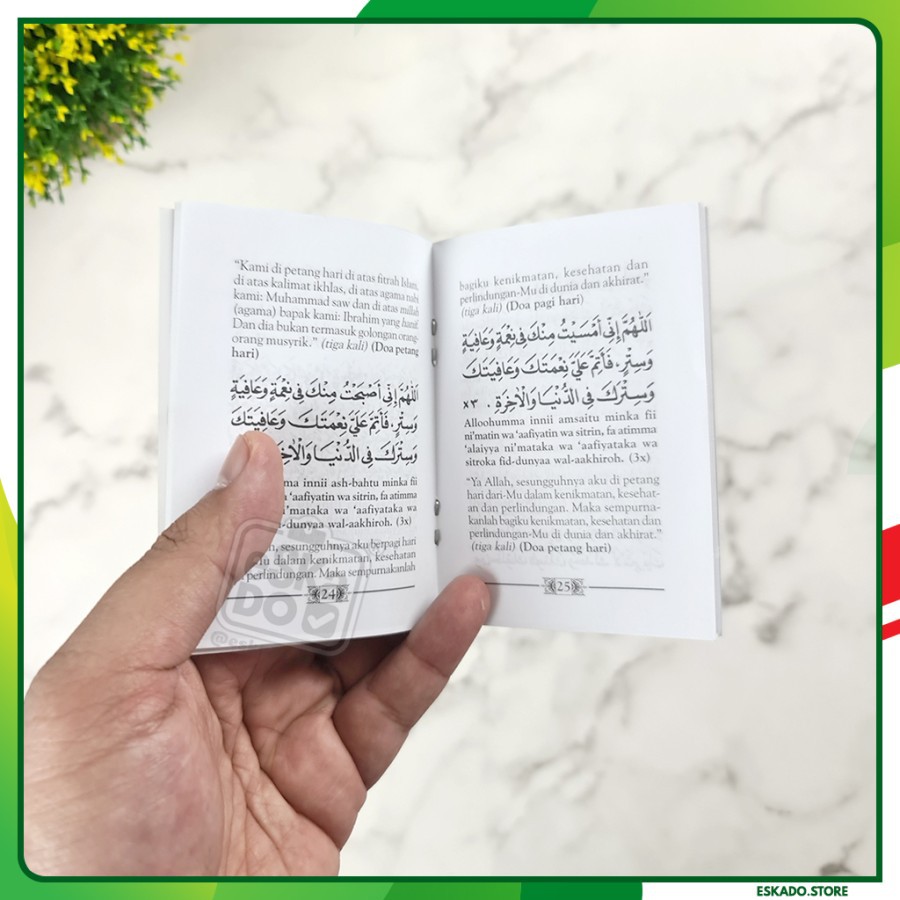 “Kami di petang hari di atas fitrah Islam,
di atas kalimat ikhlas, di atas agama nabi
kami: Muhammad saw dan di atas millah
(agama) bapak kami: Ibrahim yang hanif.
Dan dia bukan termasuk golongan orang-
orang musyrik.” (tiga kali) (Doa petang
hari)
اَللّٰهُمَّ اِنِّى اَصْبَحْتُ مِنْكَ فِى نِعْمَةٍ وَعَافِيَةٍ
وَسِتْرٍ، فَأَتِمَّ عَلَيَّ نِعْمَتَكَ وَعَافِيَتَكَ
وَسِتْرَكَ فِى الدُّنْيَا وَالْاٰخِ
ma innii ash-bahtu minka fii
‘aafiyatin wa sitrin, fa atimma
ni’mataka wa ‘aafiyataka wa
-dunyaa wal-aakhiroh. (3x)
sesungguhnya aku berpagi hari
Mu dalam kenikmatan, kesehatan
perlindungan. Maka sempurnakanlah
24
bagiku kenikmatan, kesehatan dan
perlindungan-Mu di dunia dan akhirat.”
(tiga kali) (Doa pagi hari)
اَللّٰهُمَّ اِنِّى اَمْسَيْتُ مِنْكَ فِى نِعْمَةٍ وَعَافِيَةٍ
وَسِتْرٍ، فَأَتِمَّ عَلَيَّ نِعْمَتَكَ وَعَافِيَتَكَ
وَسِتْرَكَ فِى الدُّنْيَا وَالْاٰخِرَةِ . ٣×
Alloohumma innii amsaitu minka fii
ni’matin wa ‘aafiyatin wa sitrin, fa atimma
‘alaiyya ni’mataka wa ‘aafiyataka wa
sitroka fid-dunyaa wal-aakhiroh. (3x)
“Ya Allah, sesungguhnya aku di petang
hari dari-Mu dalam kenikmatan, kesehat-
an dan perlindungan. Maka sempurna-
kanlah bagiku kenikmatan, kesehatan dan
perlindungan-Mu di dunia dan akhirat.”
(tiga kali) (Doa petang hari)
25
ESKADO.STORE